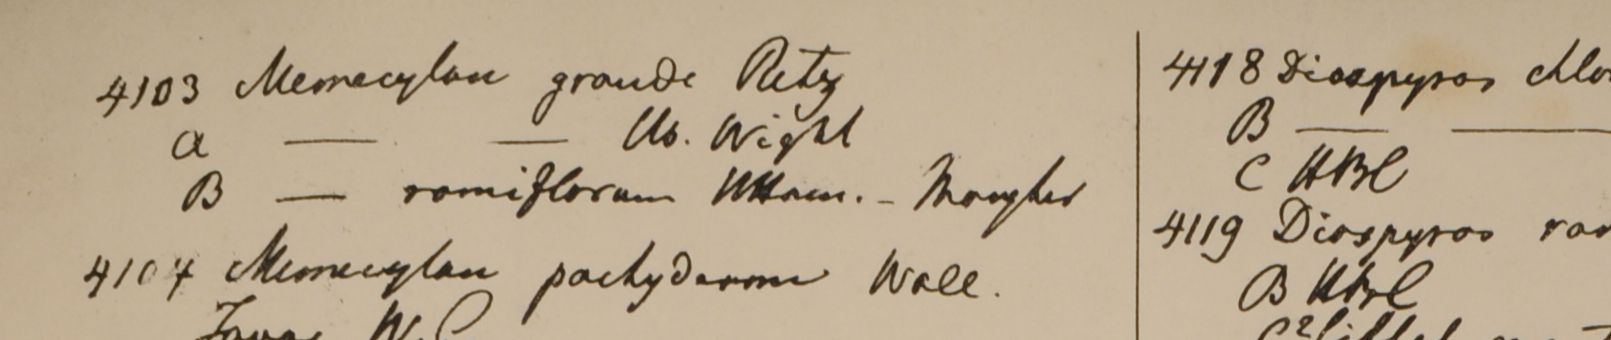 4103 Memecylon grande Retz
a — — Hb. Wight
B — ramiflorum HHam. - Monghir
4104 Memecylon pachyderma Wall.
W.
4118 Diospyros chlo
B — —
C HBC
4119 Diospyros ram
B HBC